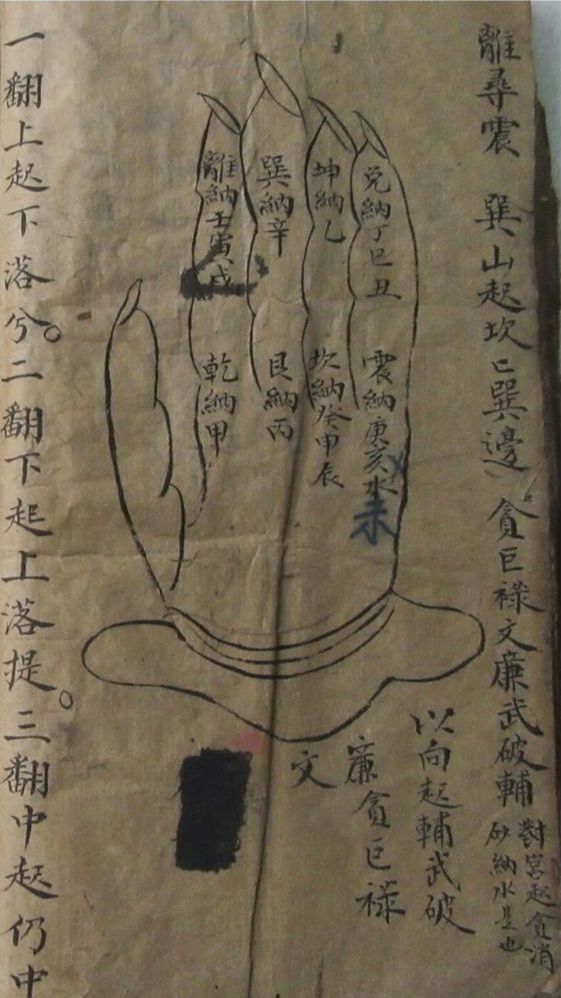 離尋震 巽山起坎巳巽邊 貪巨祿文廉武破輔
對宮起貪消
砂納水是也
兌納丁巳丑
震納庚亥水
未
坤納乙
坎納癸申辰
巽納辛
艮納丙
離納壬寅戌
乾納甲
以向起輔武破
廉貪巨祿
文
一翻上起下落兮。二翻下起上落提。三翻中起仍中